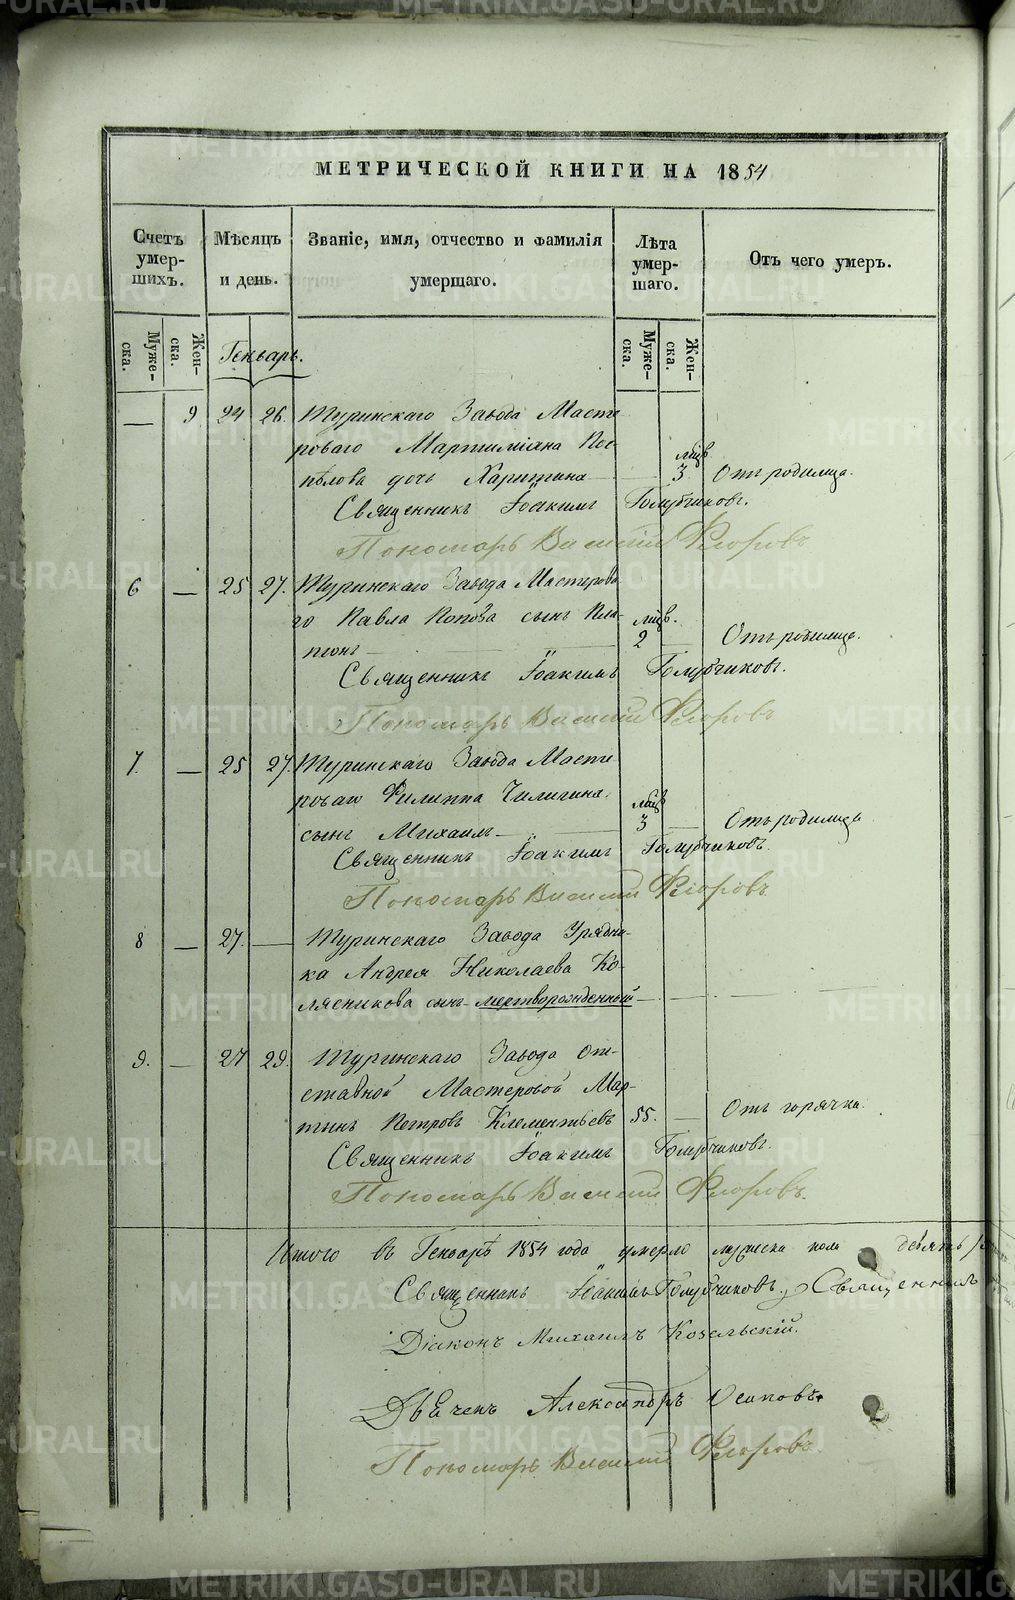 МЕТРИЧЕСКОЙ КНИГИ НА 1854
Счетъ умер-шихъ.
Мѣсяцъ и день.
Званіе, имя, отчество и фамилія умершаго.
Лѣта умер-шаго.
Отъ чего умеръ.
Муже-ска. Жен-ска.
Генварь.
Муже-ска. Жен-ска.
— 9 24 26. Туринскаго Завода Масте
роваго Мартиміана Пос-
пѣлова дочь Харитина 3 Отъ родимца.
Священникъ Іоакимъ Голубчиковъ.
Пономарь Василій Флоровъ
6 — 25 27. Туринскаго Завода Мастерова
го Павла Попова сынъ Пла-
тонъ — 2 — Отъ родимца.
Священникъ Іоакимъ Голубчиковъ.
Пономарь Василій Флоровъ
7. — 25 27. Туринскаго Завода Масте
роваго Филиппа Чиличина
сынъ Михаилъ — 3 — Отъ родимца
Священникъ Іоакимъ Голубчиковъ.
Пономарь Василій Флоровъ
8 — 27. — Туринскаго Завода Урядни-
ка Андрея Николаева Ко-
лясникова сынъ мертворожденный —
9. — 27 29. Туринскаго Завода от-
ставной Мастеровой Мар-
тинъ Петровъ Клементьевъ 55. — Отъ горячки.
Священникъ Іоакимъ Голубчиковъ.
Пономарь Василій Флоровъ.
Итого въ Генварѣ 1854 года умерло мужеска полу девять
Священникъ Іоакимъ Голубчиковъ. Священникъ
Діаконъ Михаилъ Козельскій.
Дьяченъ Александръ Осиповъ.
Пономарь Василій Флоровъ.
METRIKI.GASO-URAL.RU